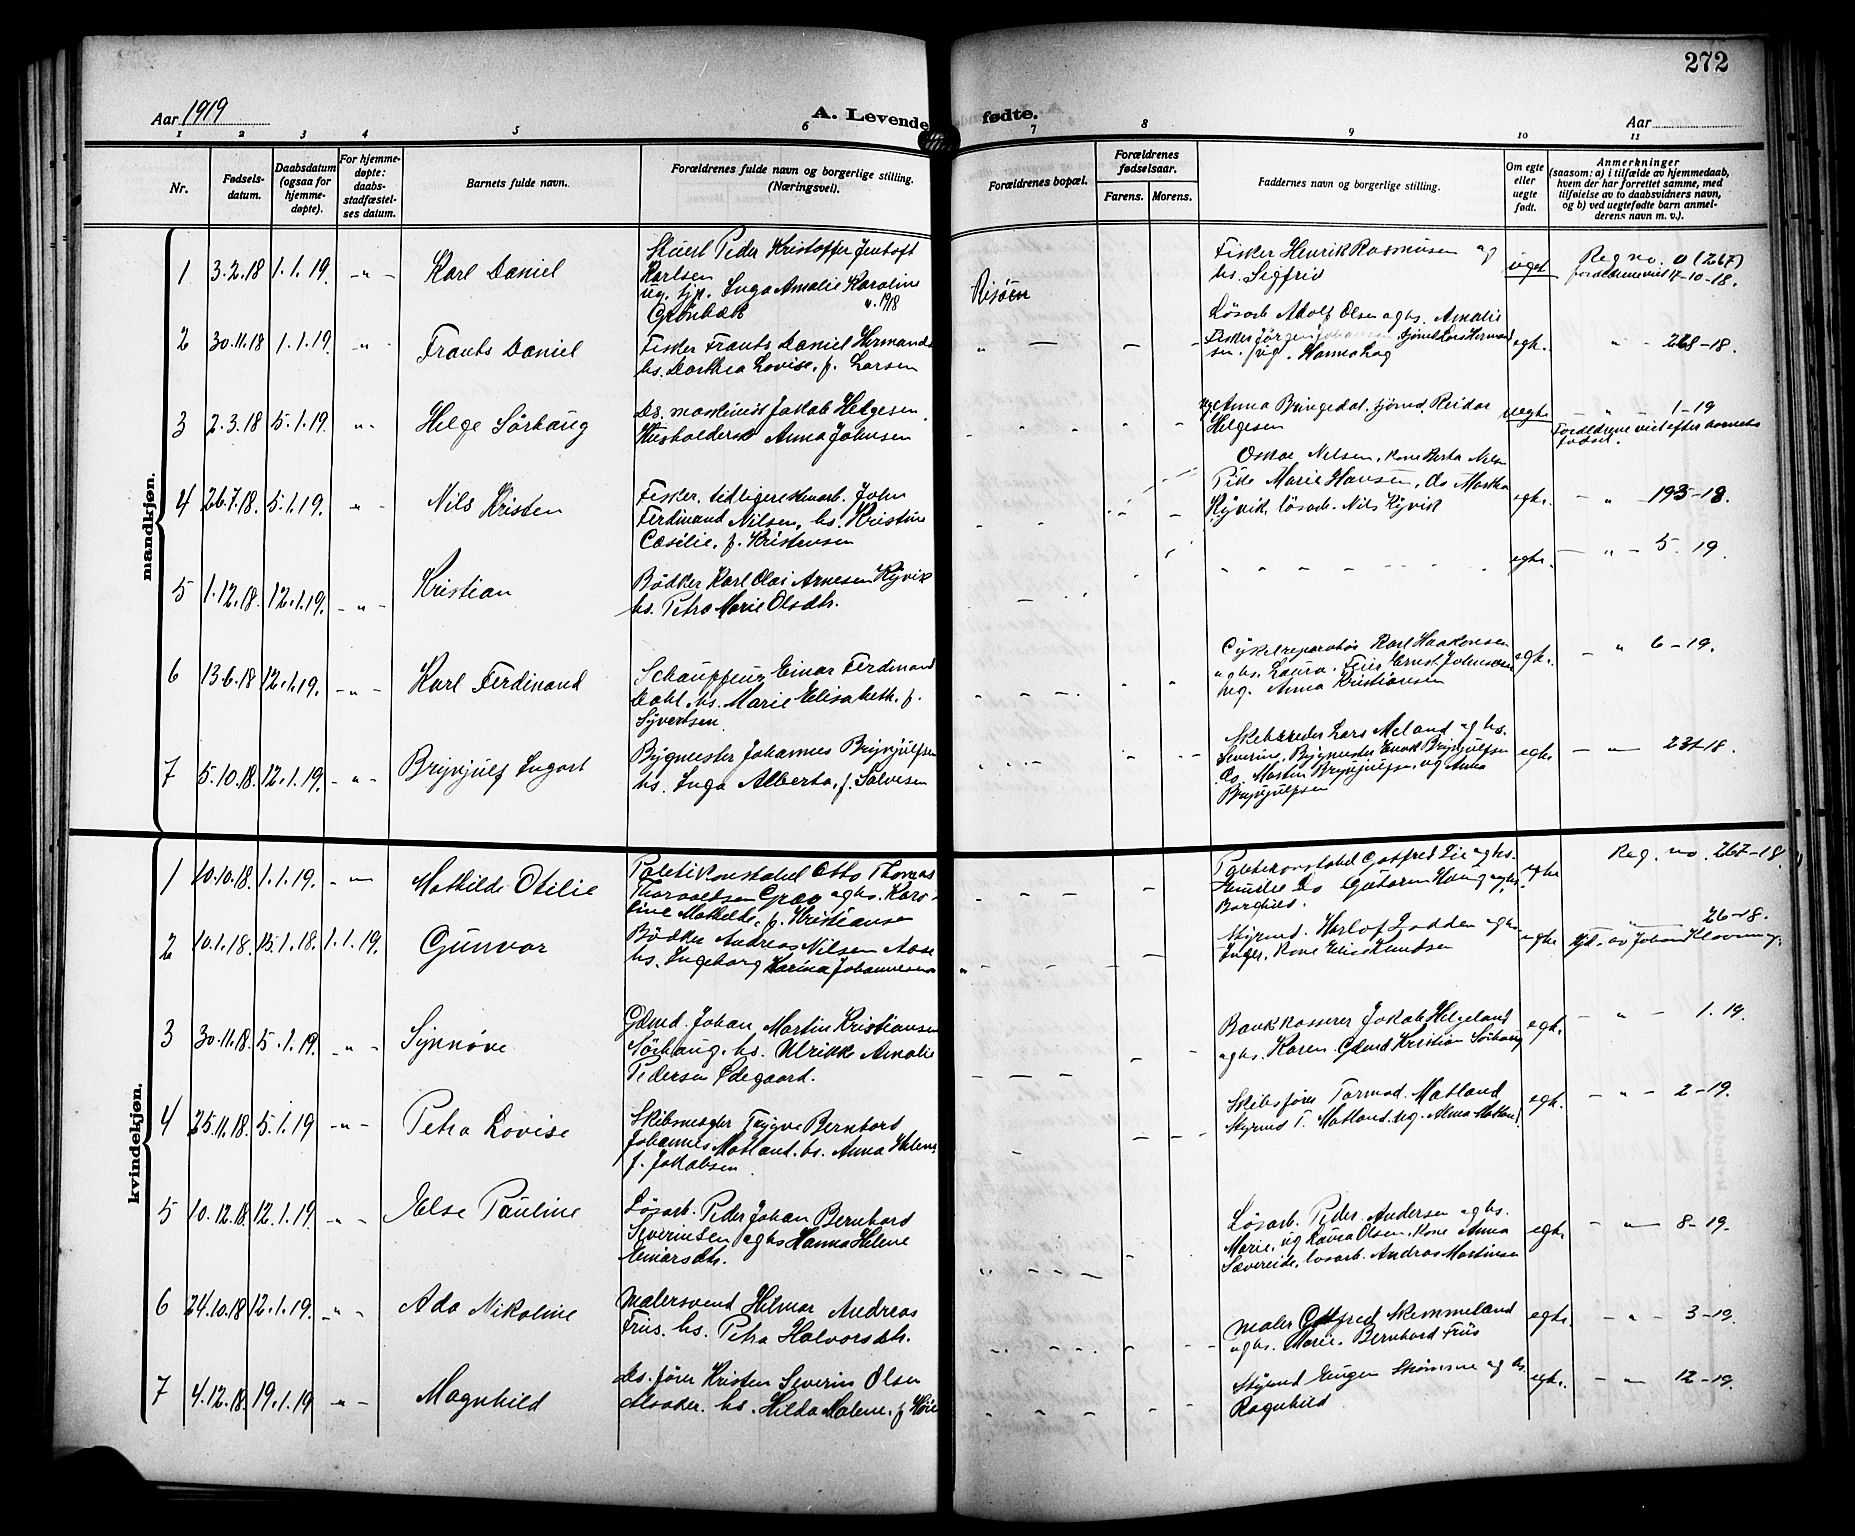 272
Aar 1919
A. Levende fødte.
Aar
1 2 3 4 5 6 7 8 9 10 11
Nr.
Fødselsdatum.
Daabsdatum (ogsaa for hjemmedøpte).
For hjemmedøpte: daabsstadfæstelses datum.
Barnets fulde navn.
Forældrenes fulde navn og borgerlige stilling. (Næringsvei).
Forældrenes bopæl.
Forældrenes fødselsaar.
Farens. Morens.
Faddernes navn og borgerlige stilling.
Om egte eller uegte født.
Anmerkninger
(saasom: a) i tilfælde av hjemmedaab,
hvem der har forrettet samme, med
tilføielse av to daabsvidners navn,
og b) ved uegtefødte barn anmelderens navn m. v.).
mandkjøn.
1 3.2.18 1.1.19. - " - Karl Daniel
Stuert Peder Kristoffer Jentoft
Karlsen
ug. tjp. Inga Amalie Karoline
Grönbæk v. 1918
Risöen
Fisker Henrik Rasmussen og
hs. Sigfrid
uegt.
Reg no. 0 (267)
forældrene viet 17-10-18.
2 30.11.18 1.1.19. " - Frants Daniel
Fisker Frants Daniel Hermands
hs. Dorthea Lovise, f. Larsen
Lösarb Adolf Olsen og hs. Amalie
Fisker Jörgen Johansen
sen. ug. Hanna
egte. " - 268-18.
3 2.3.18 5.1.19. " - Helge Sörhaug
Ds. maskinist Jakob Helgesen
Husholderske Anna Johnsen
ug Anna Bringedal. sjömd. Reidar
Helgesen
uegte - " - 1-19
Forældrene viet efter barnets
födsel.
4 26.7.18. 5.1.19. " - Nils Kristen
Fisker, tidligere stenarb. John
Ferdinand Nilsen, hs. Kristine
Cæsilie, f. Kristensen
Oskar Nilsen, kone Berta Nilsen
Pike Marie Hansen, do Martha
Kyvik, lösarb. Nils Kyvik
egte. - " - 193-18.
5 1.12.18. 12.1.19. - " - Kristian
Bödker Karl Olai Arnesen Kyvik
hs. Petra Marie Olsdtr.
egte. - " - 5. 19.
6 13.6.18 12.1.19. - " - Karl Ferdinand
Schauffeur Einar Ferdinand
Dahl, hs. Marie Elisabeth, f.
Syvertsen
Cykelreparatör Karl Haakonsen
og hs. Laura. Ernst Johnsen
ug. Anna Kristiansen
egte. - " 6-19.
7 5.10.18. 12.1.19. - " - Brynjulf Ingart
Bygmester Johannes Brynjulfsen
hs. Inga Alberta, f. Salvesen
Skibsreder Lars Meland og hs.
Severine, Bygmester Enok Brynjulfsen
do. Martin Brynjulfsen, ug Anna
Brynjulfsen
egte - " - 231-18.
kvindekjøn.
1 10.10.18. 1.1.19. - " - Mathilde Otilie
Politikonstabel Otto Thomas
Thorvaldsen Graa og hs. Karoline
Mathilde, f. Kristiansen
Politikonstabel Gotfred Lie og hs.
Emilie Do Guttorm Haug og hs.
Borghild.
egte Reg. no. 267-18
2 10.1.18. 15.1.18. 1.1.19. Gunvor
Bödker Andreas Nilsen Aase
hs. Ingeborg Karina Johannesen
Styrmd. Harlof Lodden og hs.
Inger, kone Elise Knudsen
egte 26-18.
Hjd. av Johan Klovning.
3 30.11.18 5.1.19. " - Synnöve
Gdmd. Johan Martin Kristiansen
Sörhaug. hs. Ulrikke Amalie
Pedersen Ödegaard.
Bankkasserer Jakob Helgeland
og hs. Karen. Gdmd Kristian Sörhaug
egte. - " - 1. 19.
4 25.11.18. 5.1.19 - " - Petra Lovise
Skibsmegler Trygve Bernhard
Johannes Matland. hs. Anna Helene
f. Jakobsen
Skibsförer Tormod Matland
Styrmd T. Matland. ug. Alma Matland
egte. - " - 2-19.
5 10.12.18. 12.1.19 " - Else Pauline
Lösarb. Peder Johan Bernhard
Severinsen og hs Hanna Helene
Lösarb. Peder Andersen og hs.
Marie, ug Lovisa Olsen. Kone Anna
Sævereide, lösarb. Andras Martinsen
egte. - " - 8-19.
6 24.10.18 12.1.19. " - Ada Nikoline
Malersvend Hilmar Andreas
Friis. hs. Petra Halvorsdtr.
Maler Gotfred Skemmeland
og hs. Marie. Bernhard Friis
egte. - " - 3-19.
7 4.12.18. 19.1.19 " - Magnhild
Ds. förer Kristen Severin Olsen
Alsaker. hs. Hilda Malene. f
Styrmd Eugen Skömsøe og hs.
Ragnhild
egte. - " - 12-19.